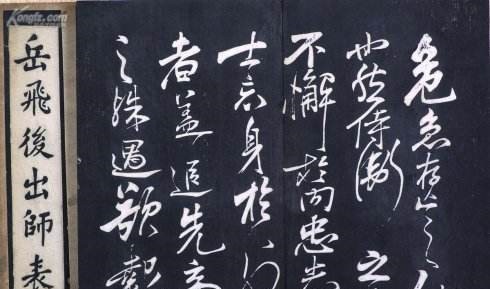 危急存亡之
也然侍衛之
不懈於內忠志
士忘身於外
者蓋追先帝
之殊遇欲報
岳飛後出師表
Kongfz.com